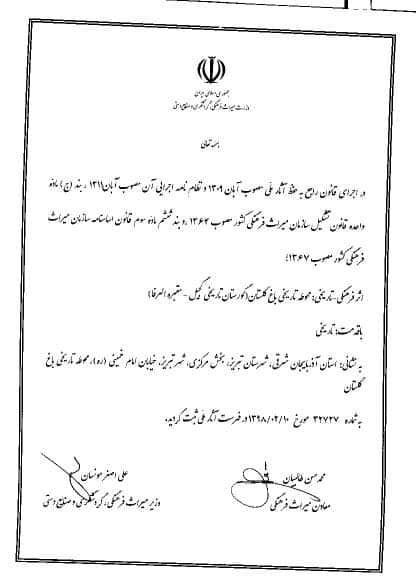 جمهوری اسلامی ایران
وزارت میراث فرهنگی، گردشگری و صنایع دستی
بسمه تعالی
در اجرای قانون راجع به حفظ آثار ملی مصوب آبان ۱۳۰۹ و نظام نامه اجرایی آن مصوب آبان ۱۳۱۱، بند (ج) ماده
واحده قانون تشکیل سازمان میراث فرهنگی کشور مصوب ۱۳۶۴ و بند ششم ماده سوم قانون اساسنامه سازمان میراث
فرهنگی کشور مصوب ۱۳۶۷؛
اثر فرهنگی-تاریخی: محوطه تاریخی باغ گلستان (گورستان تاریخی گجیل - مقبره العرفا)
با قدمت: تاریخی
به نشانی: استان آذربایجان شرقی، شهرستان تبریز، بخش مرکزی، شهر تبریز، خیابان امام خمینی (ره)، محوطه تاریخی باغ
گلستان
به شماره ۳۲۷۲۷ مورخ ۱۳۹۸/۰۲/۱۰ در فهرست آثار ملی ثبت گردید.
محمدحسن طالبیان
معاون میراث فرهنگی
علی اصغر مونسان
وزیر میراث فرهنگی، گردشگری و صنایع دستی